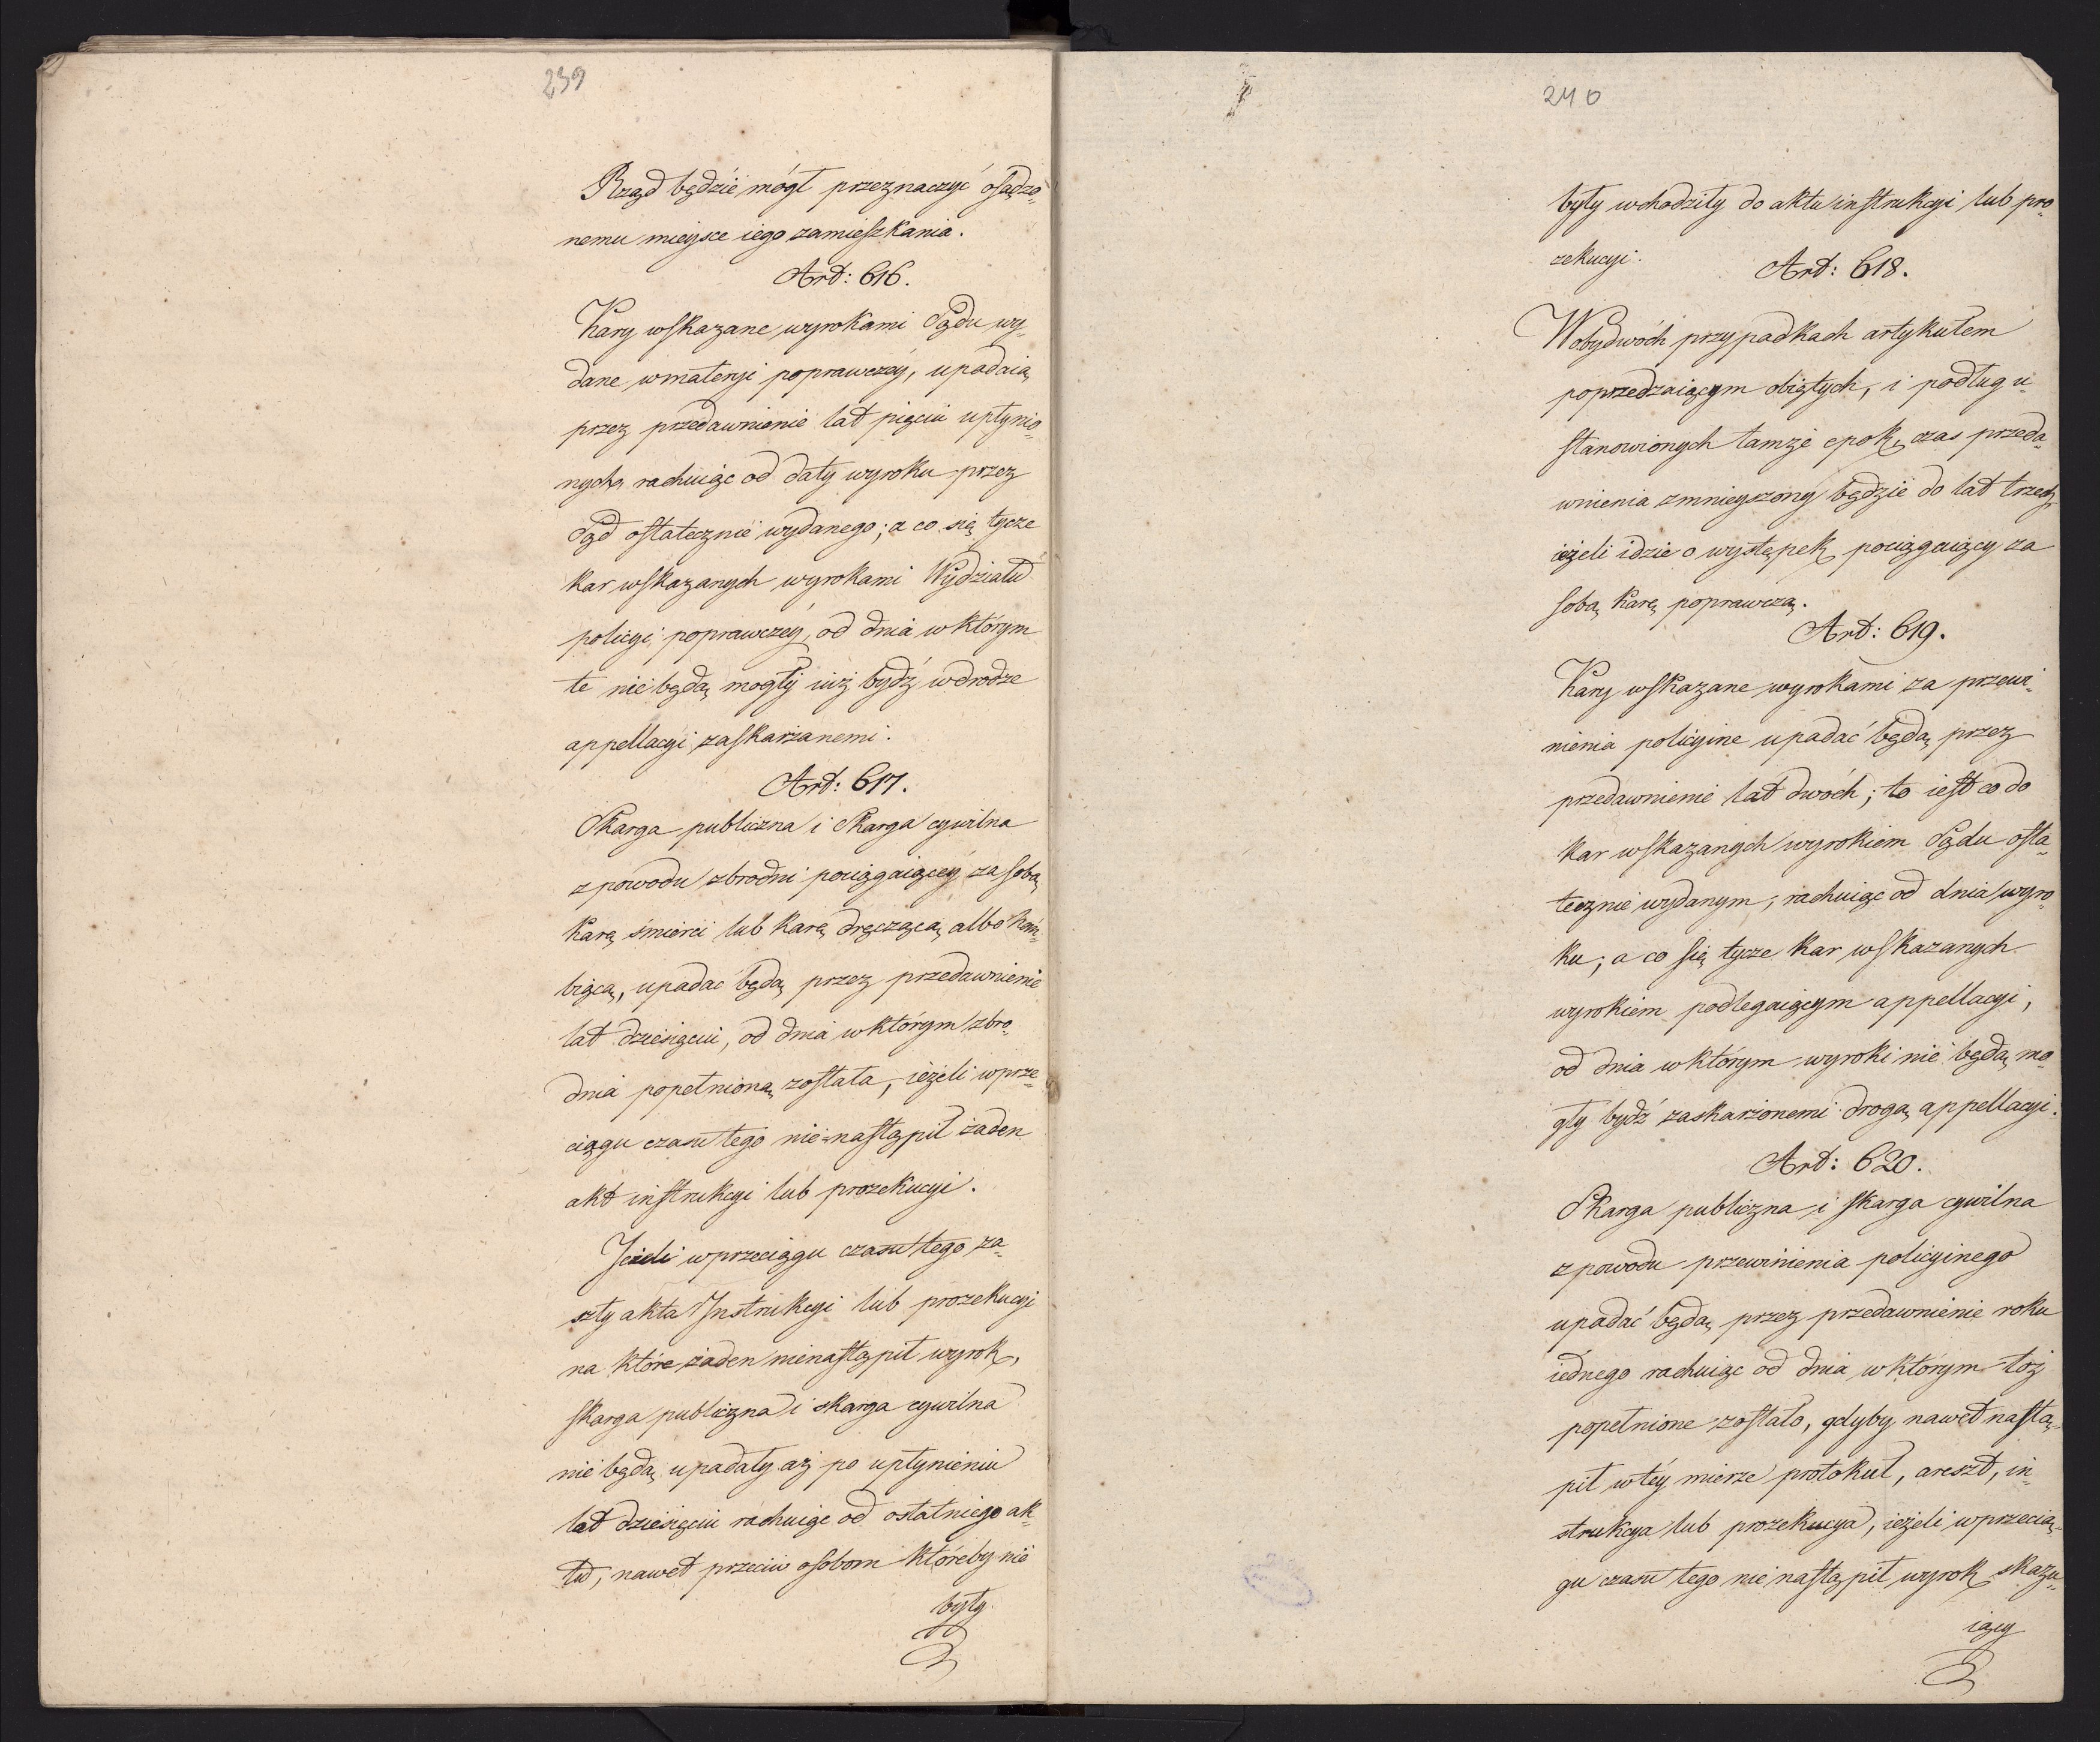 239
Rząd będzie mógł przeznaczyć osądzo=
nemu mieysce iego zamieszkania.
Art: 616.
Kary wskazane wyrokami Sądu wy=
dane wmateryi poprawczéy, upadaią
przez przedawnienie lat pięciu upłynio=
nych, rachuiąc od daty wyroku przez
Sąd ostatecznie wydanego; a co się tycze
kar wskazanych wyrokami Wydziału
policyi poprawczéy, od dnia wktórym
te nie będą mogły iuż bydź wdrodze
appellacyi zaskarżanemi.
Art: 617.
Skarga publiczna i Skarga cywilna
zpowodu zbrodni pociągaiącéy za sobą
karę śmierci lub karę dręczącą albo hań=
biącą, upadac będą przez przedawnienie
lat dziesięciu, od dnia wktórym zbro=
dnia popełnioną została, ieżeli wprze=
ciągu czasu tego nie nastąpił żaden
akt instrukcyi lub prozekucyi.
Jeżeli wprzeciągu czasu tego za=
szły akta Instrukcyi lub prozekucyi
na które żaden nienastąpił wyrok,
skarga publiczna i skarga cywilna
nie będą upadały aż po upłynieniu
lat dziesięciu rachuiąc od ostatniego ak=
tu, nawet przeciw osobom któreby nie
były
240
były wchodziły do aktu instrukcyi lub pro=
zekucyi.
Art: 618.
Wobydwóch przypadkach artykułem
poprzedzaiącym obiętych, i podług u=
stanowionych tamże epok, czas przeda=
wnienia zmnieyszony będzie do lat trzech,
ieżeli idzie o występek pociągaiący za
sobą karę poprawczą.
Art: 619.
Kary wskazane wyrokami za przewi=
nienia policyine upadać będą przez
przedawnienie lat dwóch; to iest co do
kar wskazanych wyrokiem Sądu osta=
tecznie wydanym, rachuiąc od dnia wyro=
ku; a co się tycze kar wskazanych
wyrokiem podlegaiącym appellacyi,
od dnia wktórym wyroki nie będą mo=
gły bydź zaskarżonemi drogą appellacyi.
Art: 620.
Skarga publiczna i skarga cywilna
zpowodu przewinienia policyinego
upadać będą przez przedawnienie roku
iednego rachuiąc od dnia wktórym toż
popełnione zostało, gdyby nawet nastą=
pił wtéy mierze protokuł, areszt, in=
strukcya lub prozekucya, ieżeli wprzecią=
gu czasu tego nie nastąpił wyrok skazu=
iący